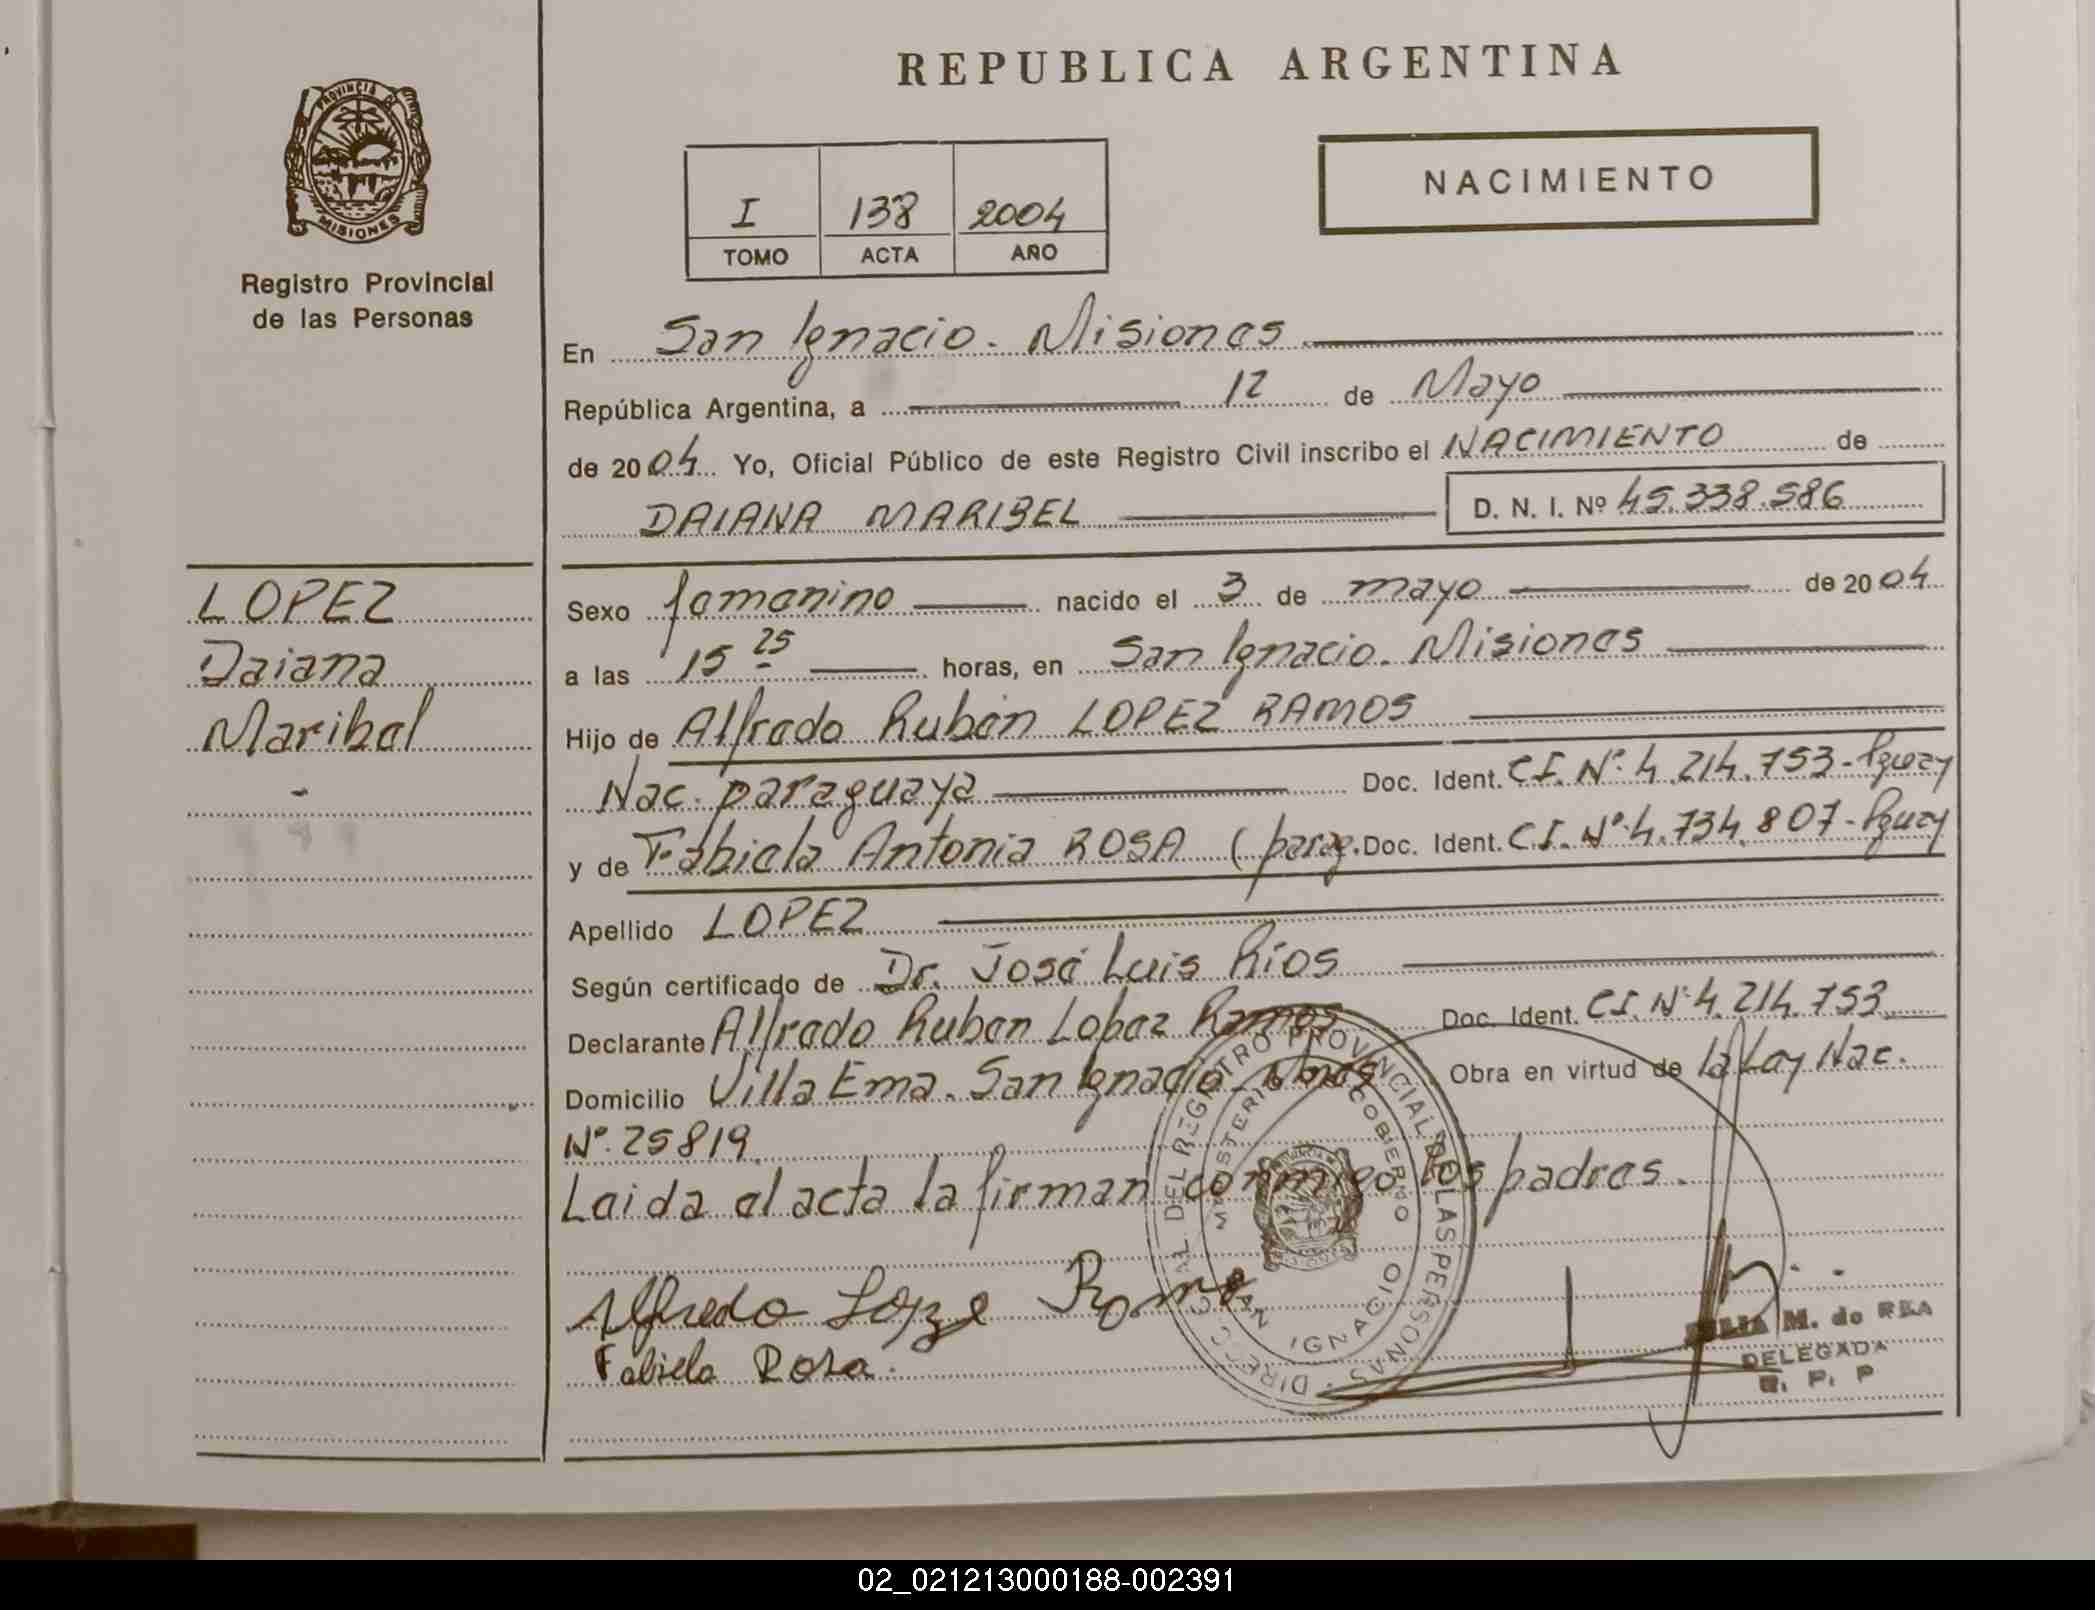 REPUBLICA ARGENTINA
PROVINCIA DE
MISIONES
Registro Provincial
de las Personas
NACIMIENTO
I 138 2004
TOMO ACTA AÑO
En San Ignacio. Misiones
República Argentina, a 12 de Mayo
de 2004 Yo, Oficial Público de este Registro Civil inscribo el NACIMIENTO de
DAIANA MARIBEL D. N. I. Nº 45.338.586
LOPEZ
Daiana
Maribel
-
Sexo femenino nacido el 3 de mayo de 2004
a las 15 25 horas, en San Ignacio. Misiones
Hijo de Alfredo Rubén LOPEZ RAMOS
Nac. paraguaya Doc. Ident. C.I. Nº 4.214.753- Pguay
y de Fabiela Antonia ROSA (parag. Doc. Ident. C.I. Nº 4.734.807- Pguay
Apellido LOPEZ
Según certificado de Dr. José Luis Ríos
Declarante Alfredo Ruben Lopez Ramos Doc. Ident. C.I. Nº 4.214.753
Domicilio Villa Ema. San Ignacio Mnes Obra en virtud de la Ley Nac.
Nº 25819
Leida el acta la firman conmigo los padres.
Alfredo Lopze Ramo
Fabiela Rosa.
DIRECC. GRAL. DEL REGISTRO PROVINCIAL DE LAS PERSONAS
MINISTERIO GOBIERNO
SAN IGNACIO
M. de REA
DELEGADA
R. P. P
02_021213000188-002391